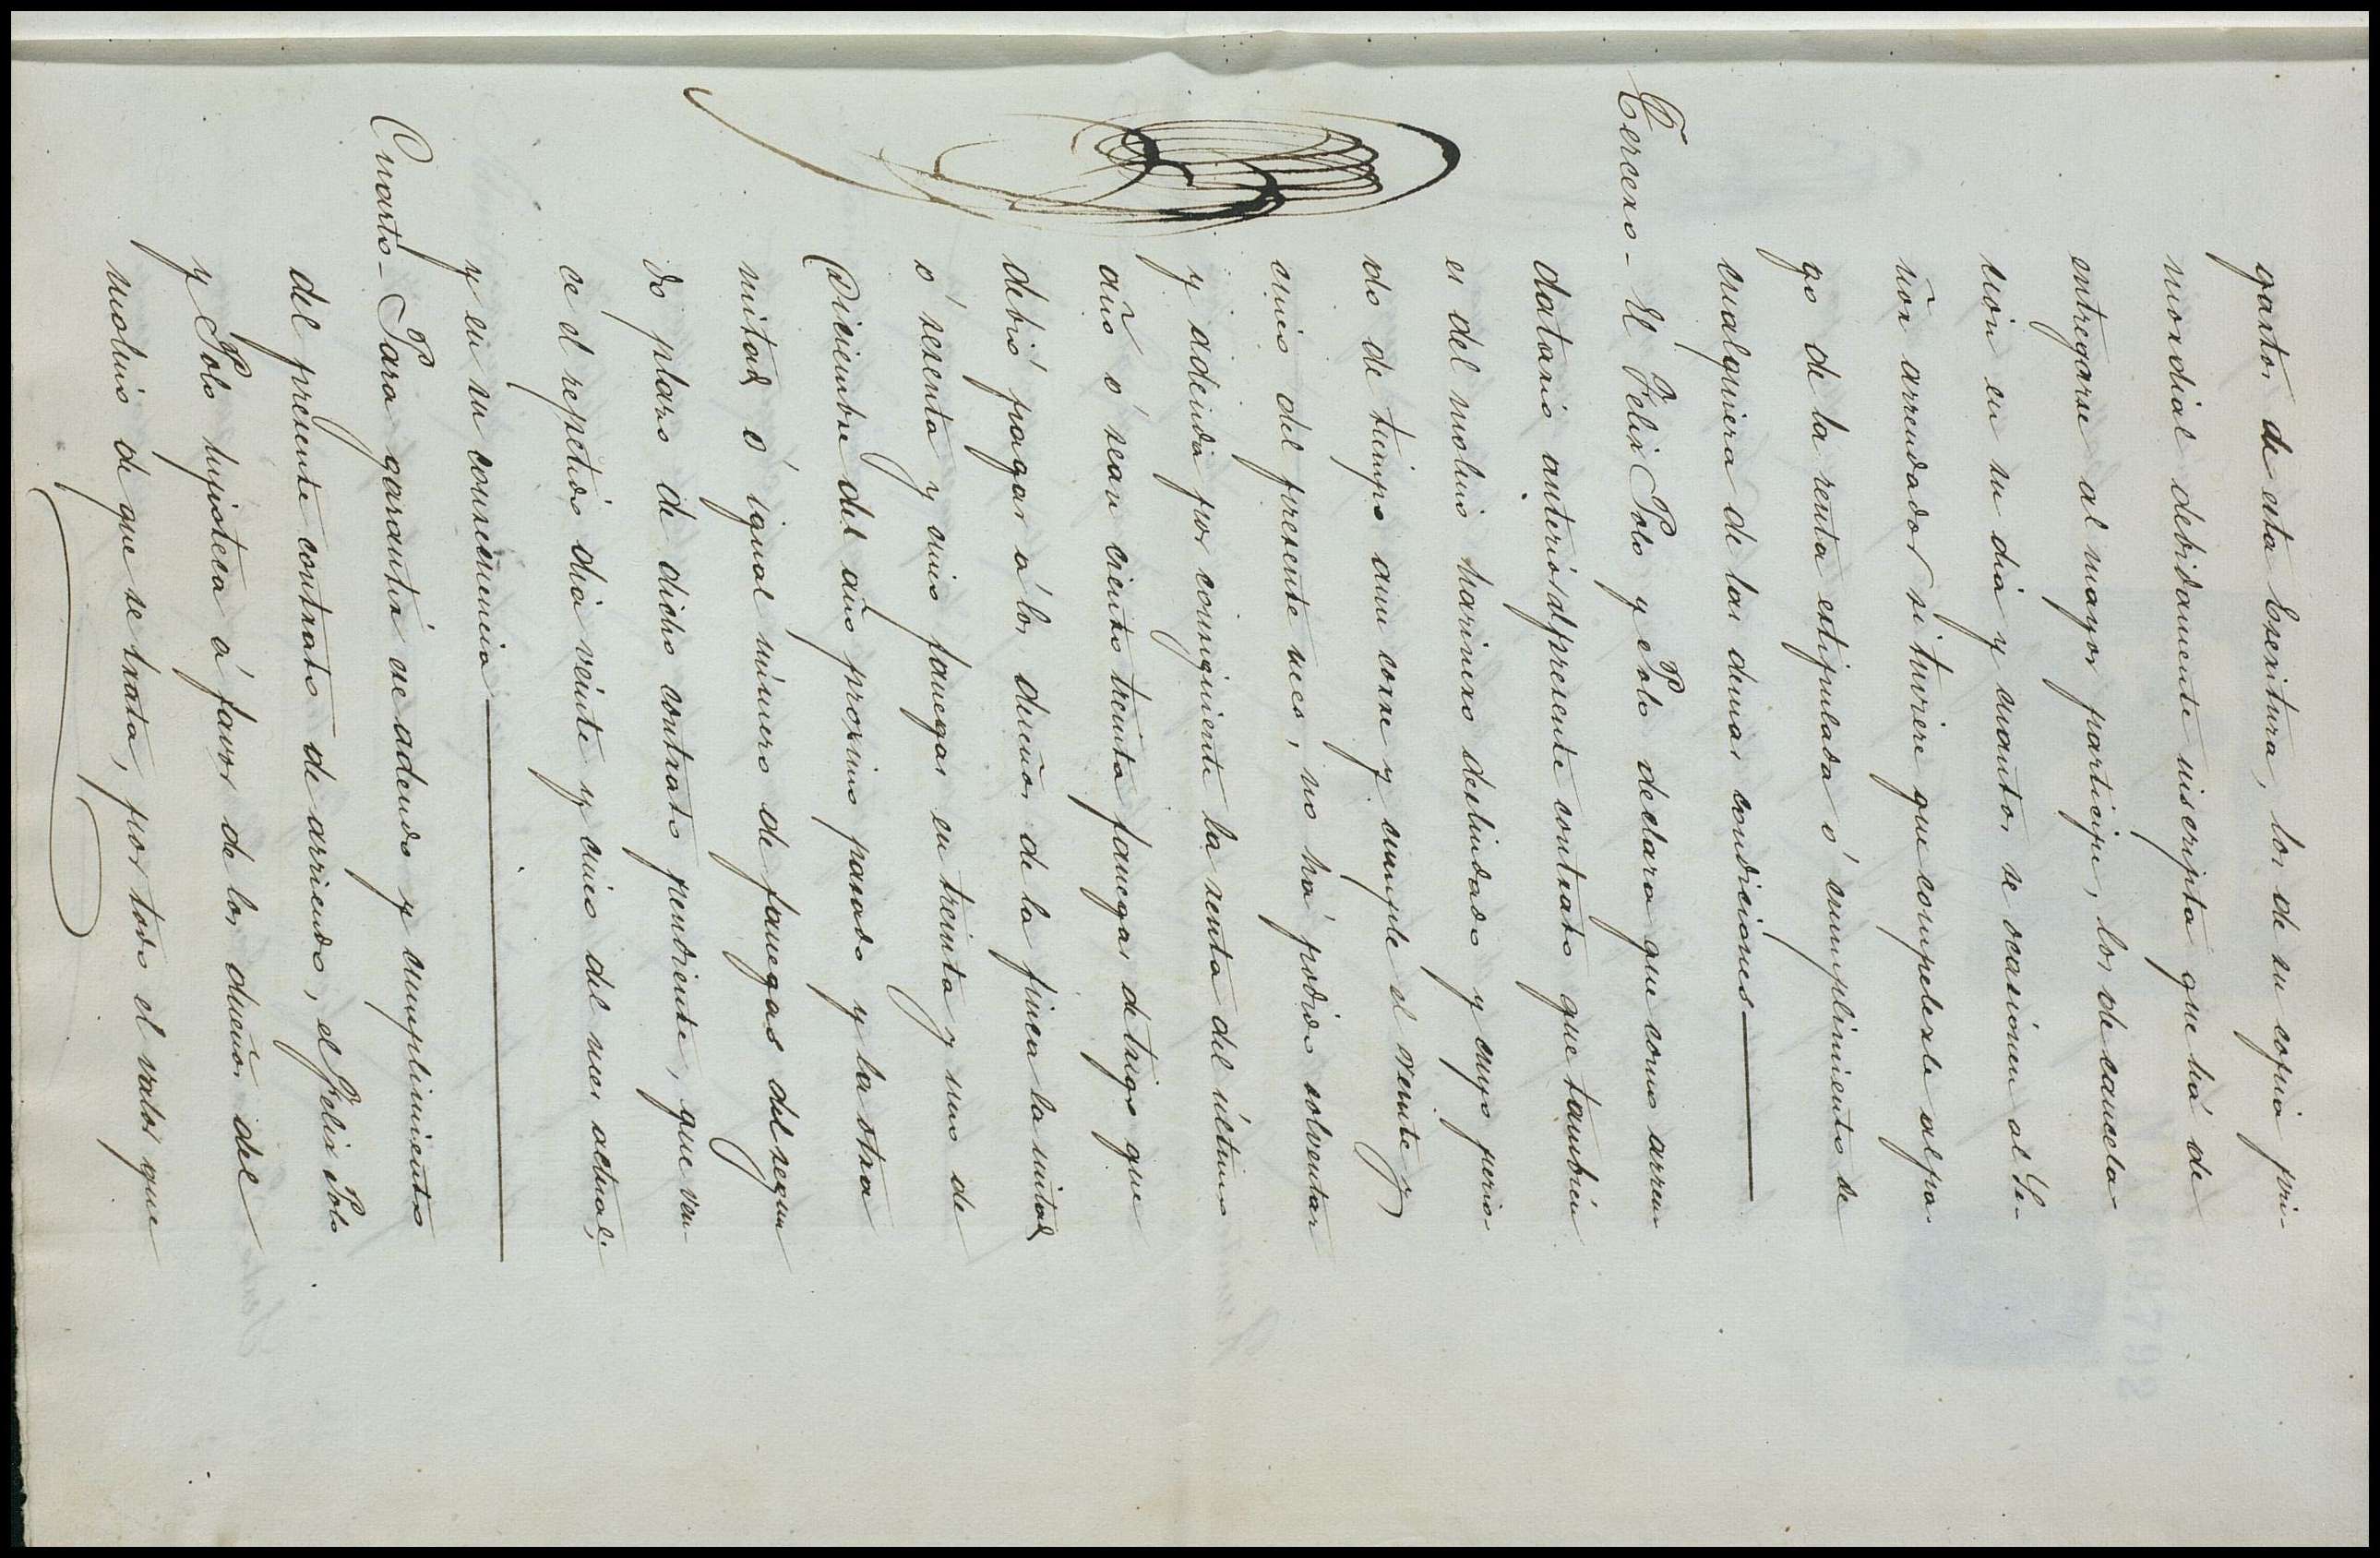 gastos de esta Escritura, los de su copia pri-
mordial debidamente inscripta que há de
entregarse al mayor participe, los de cancela-
ción en su dia y cuantos se ocasionen al Se-
ñor arrendador si tuviere que compelerle al pa-
go de la renta estipulada ó cumplimiento de
cualquiera de las demas condiciones
Tercero - El Felix Polo y Polo declara que como arren-
datario anterior al presente contrato que tambien
es del molino harinero deslindado y cuyo perio-
do de tiempo aun corre y cumple el veinte y
cinco del presente mes, no há podido solventar
y adeuda por consiguiente la renta del último
año ó sean ciento treinta fanegas de trigo que
debió pagar á los dueños de la finca la mitad
ó sesenta y cinco fanegas en treinta y uno de
Diciembre del año proximo pasado y la otra
mitad ó igual número de fanegas del segun
do plazo de dicho contrato pendiente, que ven-
ce el repetido dia veinte y cinco del mes actual;
y en su consecuencia
Cuarto - Para garantir ese adeudo y cumplimiento
del presente contrato de arriendo, el Felix Polo
y Polo hipoteca á favor de los dueños del
molino de que se trata, por todo el valor que